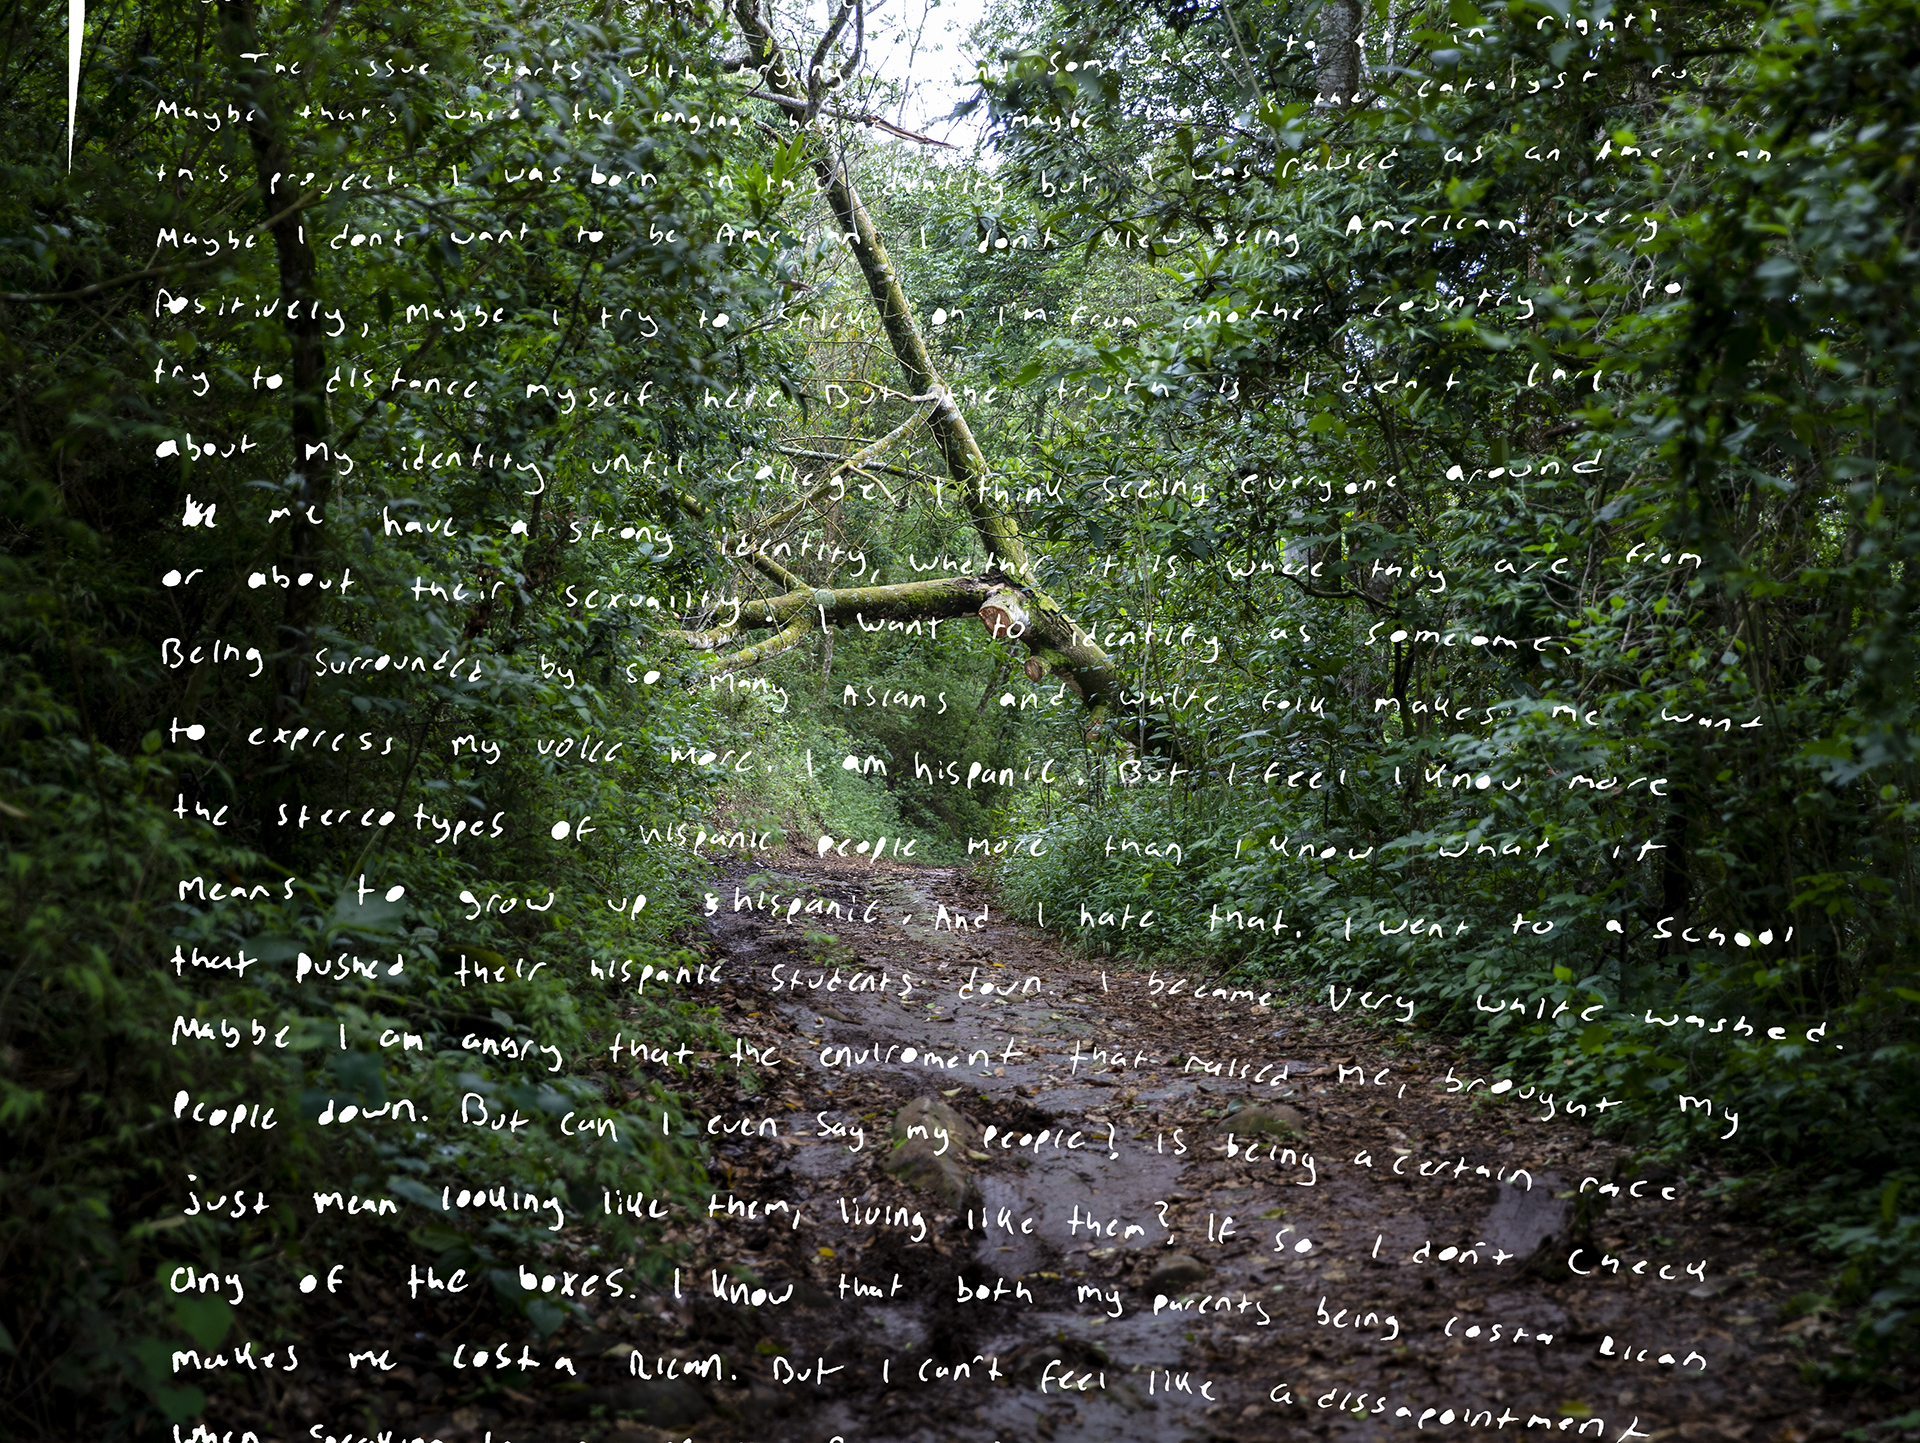 The issue starts with trying somewhere to in right?
Maybe that's where the longing began maybe that's the catalyst for
this project. I was born in this identity but I was raised as an American.
Maybe I don't want to be American I don't view being American very
Positively, Maybe I try to stick on I'm from another country" to
try to distance myself here But the truth is I didn't care
about my identity until college, I think seeing everyone around
me have a strong identity, whether it is where they are from
or about their sexuality. I want to identify as someome.
Being surrounded by so many Asians and white folk makes me want
to express my voice more. I am hispanic. But I feel I know more
the stereotypes of hispanic people more than I know what it
means to grow up hispanic. And I hate that. I went to a school
that pushed their hispanic students down. I became very white-washed.
Maybe I am angry that the enviroment that raised me, brought my
people down. But can I even say my people? is being a certain race
just mean looking like them, living like them? If so I don't check
any of the boxes. I know that both my parents being costa Rican
makes me costa Rican. But I can't feel like a dissapointment
When speaking